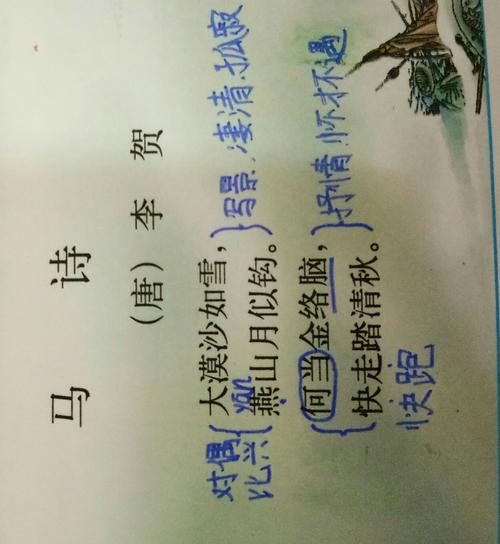 马 诗
（唐）李 贺
对偶
比兴
大漠沙如雪，
yān
燕山月似钩。
写景.凄清.孤寂
何当金络脑，
快走踏清秋。
抒情.怀才不遇
快跑